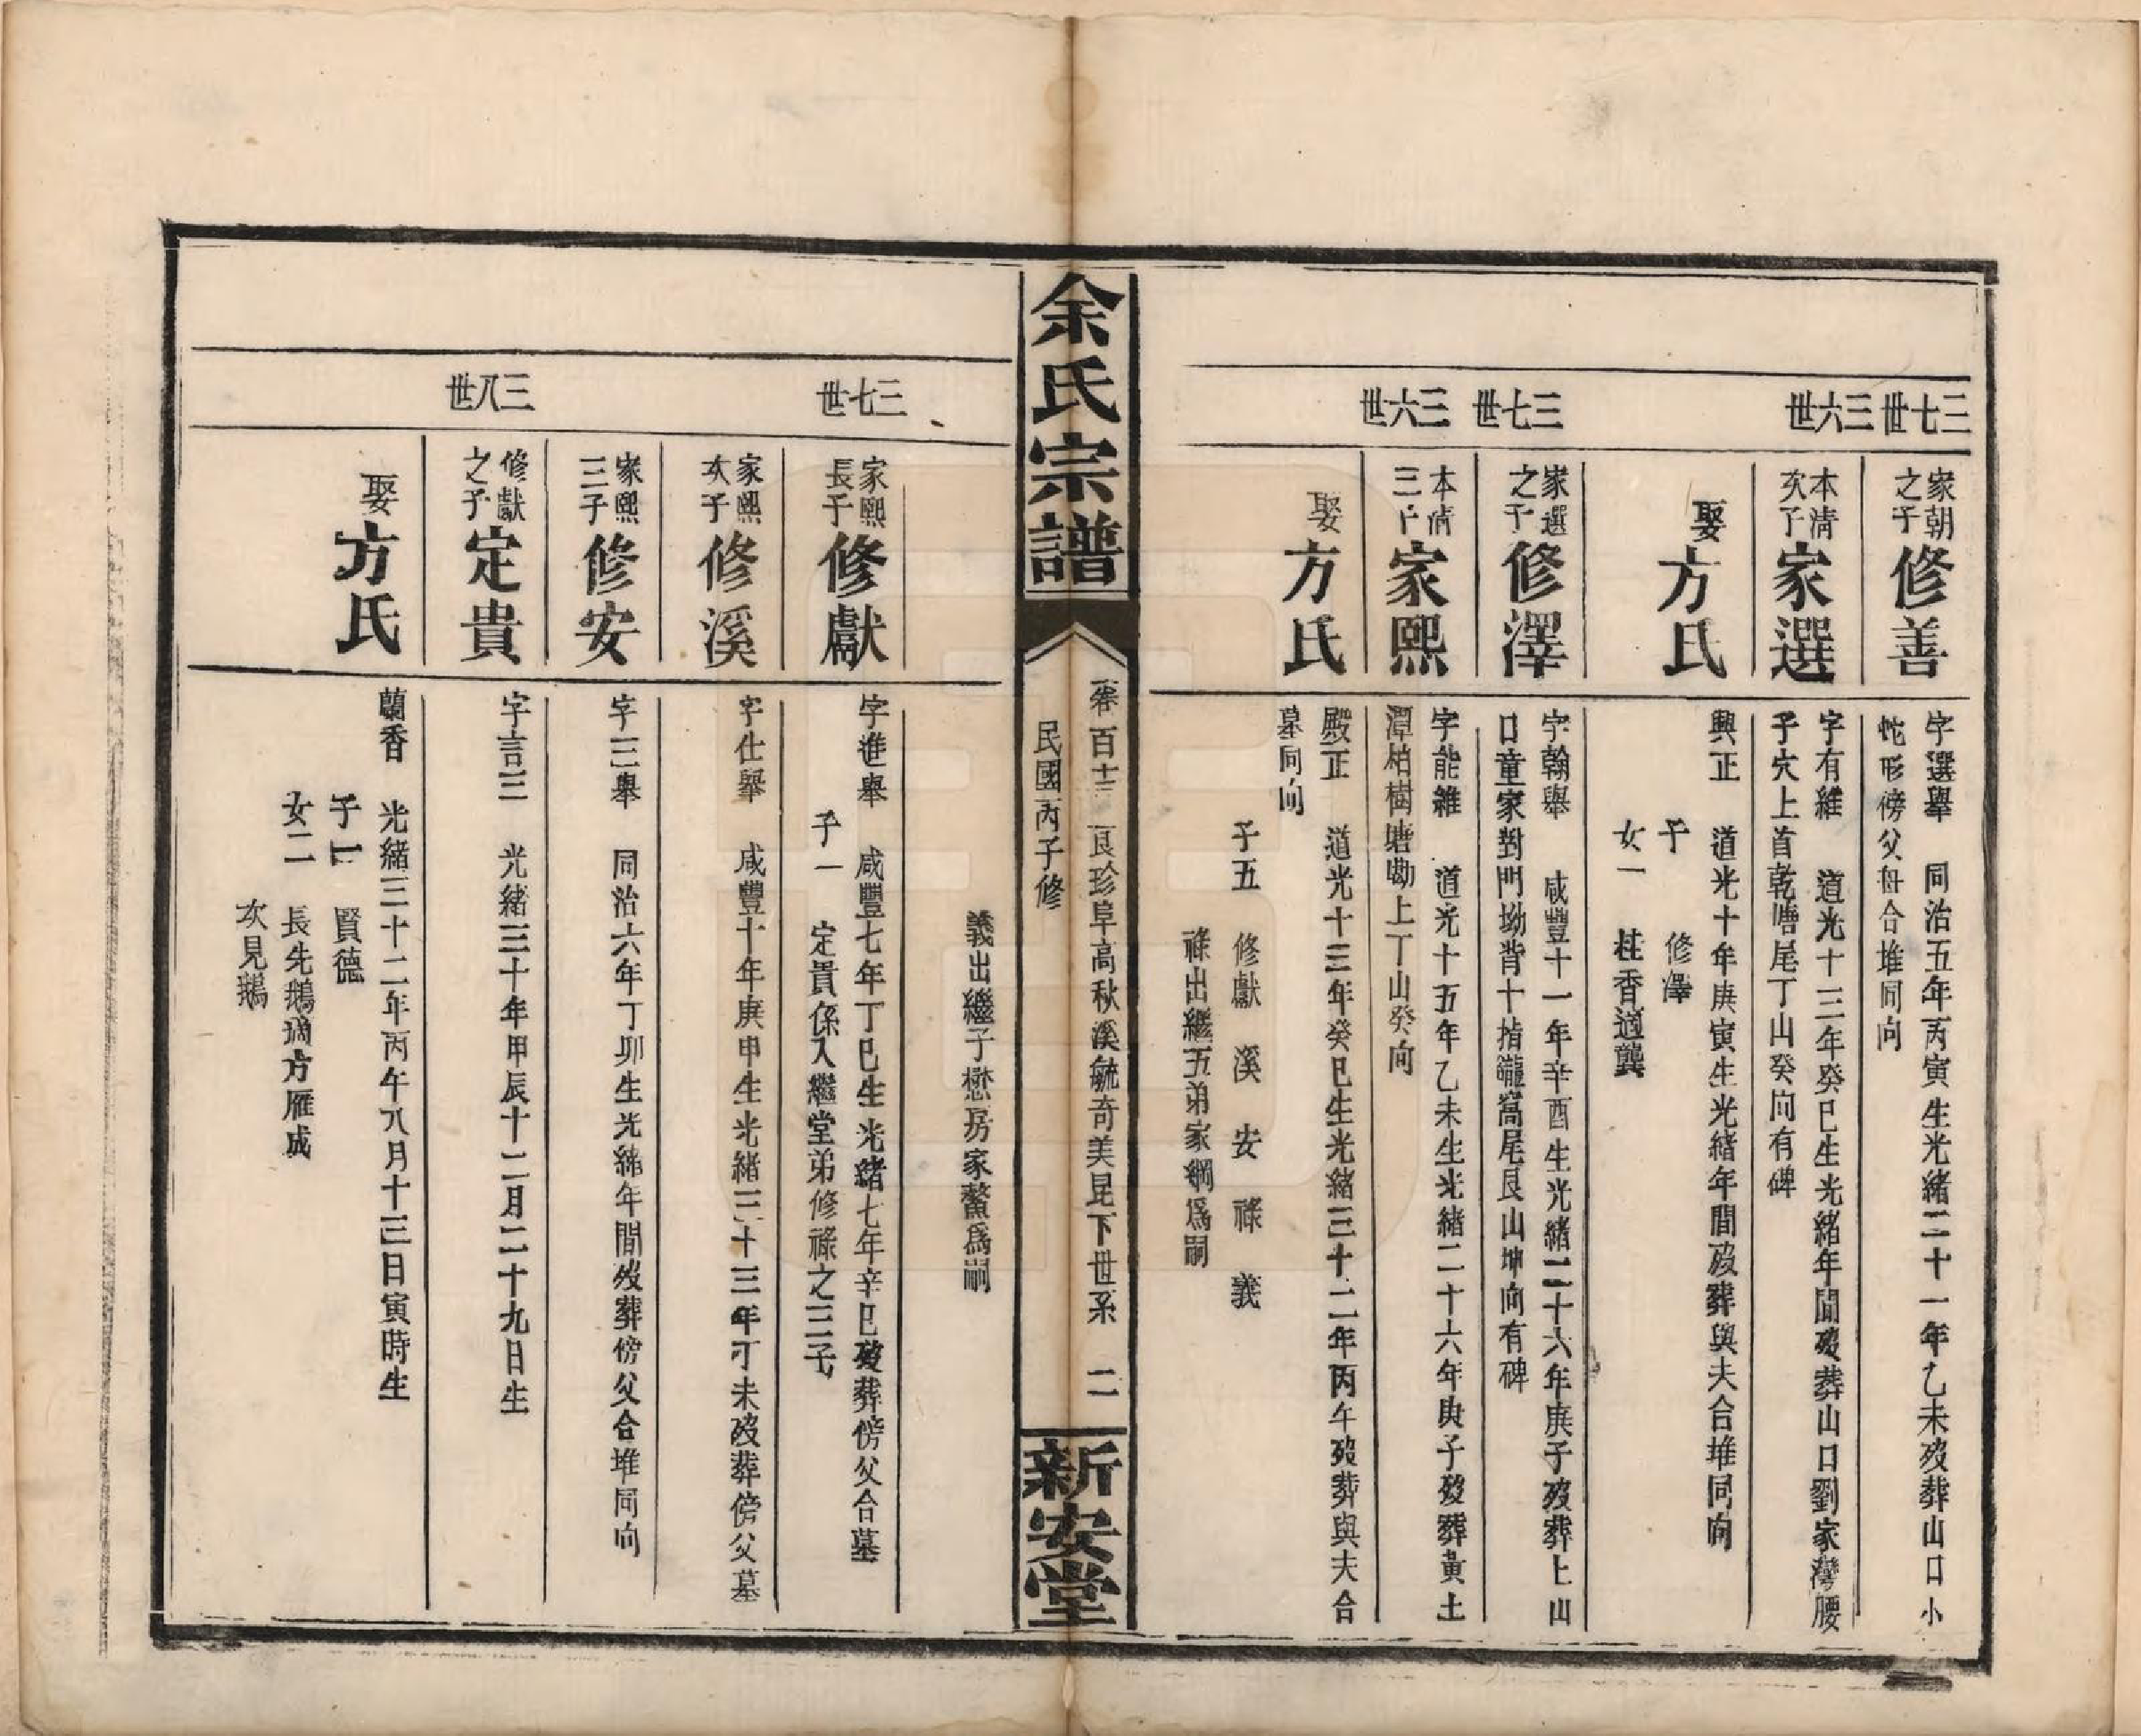 三七世
家朝之子
修善
字選舉 同治五年丙寅生光緒二十一年乙未歿葬山口小
蛇形傍父母合堆同向
三六世
本清次子
家選
字有維 道光十三年癸巳生光緒年間歿葬山口劉家灣腰
子穴上首乾塘尾丁山癸向有碑
娶方氏
興正 道光十年庚寅生光緒年間歿葬與夫合堆同向
子 修澤
女一 桂香適龔
三七世
家選之子
修澤
字翰舉 咸豐十一年辛酉生光緒二十六年庚子歿葬上山
口童家對門坳背十指壠窩尾艮山坤向有碑
三六世
本清三子
家熙
字能雍 道光十五年乙未生光緒二十六年庚子歿葬黃土
潭柏樹塘嘞上丁山癸向
娶方氏
殿正 道光十三年癸巳生光緒三十二年丙午歿葬與夫合
墓同向
子五 修獻 溪 安 祿 義
祿出繼五弟家綱爲嗣
余氏宗譜
卷百十三 良珍阜高秋溪毓奇美昆下世系 二
民國丙子修
新安堂
義出繼子懋房家鰲爲嗣
三七世
家熙長子
修獻
字進舉 咸豐七年丁巳生光緒七年辛巳歿葬傍父合墓
子一 定貴係入繼堂弟修祿之三子
家熙次子
修溪
字仕舉 咸豐十年庚申生光緒三十三年丁未歿葬傍父墓
家熙三子
修安
字三舉 同治六年丁卯生光緒年間歿葬傍父合堆同向
三八世
修獻之子
定貴
字言三 光緒三十年甲辰十二月二十九日生
娶方氏
蘭香 光緒三十二年丙午八月十三日寅時生
子一 賢德
女二 長先鵝適方雁成
次見鵝